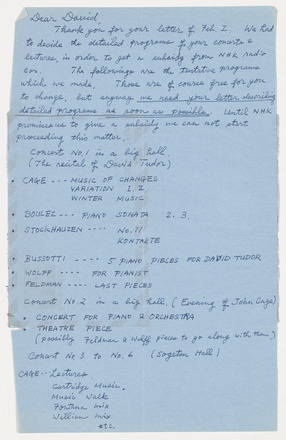 Dear David,
Thank you for your letter of Feb. 2. We had
to decide the detailed programe of your concerts &
lectures, in order to get a subsidy from NHK radio
con. The followings are the tentative programe
which we made. Those are of course free for you
to change, but anyway we need your letter describing
detailed programe as soon as possible. Until NHK
promices us to give a subsidy we can not start
proceeding this matter.
Concert No. 1 in a big hall
(The recital of David Tudor)
• CAGE --- MUSIC OF CHANGES
VARIATION 1. 2
WINTER MUSIC
• BOULEZ --- PIANO SONATA 2. 3.
• STOCKHAUZEN --- No. 11
KONTAKTE
• BUSSOTTI ---- 5 PIANO PIECES FOR DAVID TUDOR
• WOLFF ---- FOR PIANIST
• FELDMAN ---- LAST PIECES
Concert No. 2 in a big hall. (Evening of John Cage)
• CONCERT FOR PIANO & ORCHESTRA
• THEATRE PIECE
(possibly Feldman & Wolff pieces to go along with them)
Concert No 3 to No. 6 (Sogetsu Hall)
CAGE -- Lectures
Cartridge Music.
Music Walk
Fontana mix
William mix
etc.